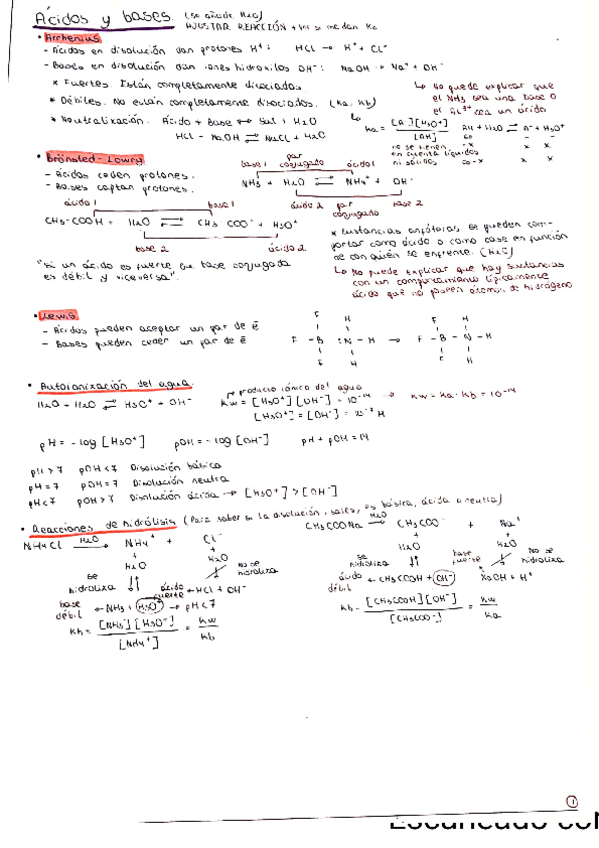 Ácidos y bases (se añade H2O)
AJUSTAR REACCIÓN + ver si me dan Ka
• Arrhenius
- Ácidos en disolución dan protones H⁺: HCl → H⁺ + Cl⁻
- Bases en disolución dan iones hidroxilos OH⁻: NaOH → Na⁺ + OH⁻
* Fuertes. Están completamente disociados
* Débiles. No están completamente disociados. (Ka, Kb)
* Neutralización. Ácido + base ↔ Sal + H2O
HCl + NaOH ⇌ NaCl + H2O
↳ No puede explicar que
el NH3 sea una base o
el Al³⁺ sea un ácido
Ka = [A⁻][H3O⁺] / [AH]
AH + H2O ⇌ A⁻ + H3O⁺
co - -
-x x x
co-x x x
no se tienen
en cuenta líquidos
ni sólidos
• Brönsted - Lowry
- Ácidos ceden protones.
- Bases captan protones.
base 1 par conjugado ácido 1
NH3 + H2O ⇌ NH4⁺ + OH⁻
ácido 2 par conjugado base 2
ácido 1 base 1
CH3-COOH + H2O ⇌ CH3 COO⁻ + H3O⁺
base 2 ácido 2
"Si un ácido es fuerte su base conjugada
es débil y viceversa".
* Sustancias anfóteras, se pueden com-
portar como ácido o como base en función
de con quién se enfrente. (H2O)
↳ No puede explicar que hay sustancias
con un comportamiento típicamente
ácido que no poseen átomos de hidrógeno
• Lewis
- Ácidos pueden aceptar un par de ē
- Bases pueden ceder un par de ē
F H F H
F - B :N - H → F - B - N - H
F H F H
• Autoionización del agua.
H2O + H2O ⇌ H3O⁺ + OH⁻
producto iónico del agua
Kw = [H3O⁺][OH⁻] = 10⁻¹⁴ → Kw = Ka · Kb = 10⁻¹⁴
[H3O⁺] = [OH⁻] = 10⁻⁷ M
pH = - log [H3O⁺] pOH = - log [OH⁻] pH + pOH = 14
pH > 7 pOH < 7 Disolución básica
pH = 7 pOH = 7 Disolución neutra
pH < 7 pOH > 7 Disolución ácida → [H3O⁺] > [OH⁻]
• Reacciones de hidrólisis (Para saber si la disolución, sales, es básica, ácida o neutra)
NH4Cl —H2O→ NH4⁺ + Cl⁻
+ +
H2O H2O
se hidroliza
No se hidroliza
ácido fuerte ← HCl + OH⁻
base débil ← NH3 + H3O⁺ → pH < 7
Kh = [NH3][H3O⁺] / [NH4⁺] = Kw / Kb
CH3COONa —H2O→ CH3COO⁻ + Na⁺
+ +
H2O H2O
se hidroliza
base fuerte
No se hidroliza
ácido débil ← CH3COOH + OH⁻ NaOH + H⁺
Kh = [CH3COOH][OH⁻] / [CH3COO⁻] = Kw / Ka
1
Escaneado con